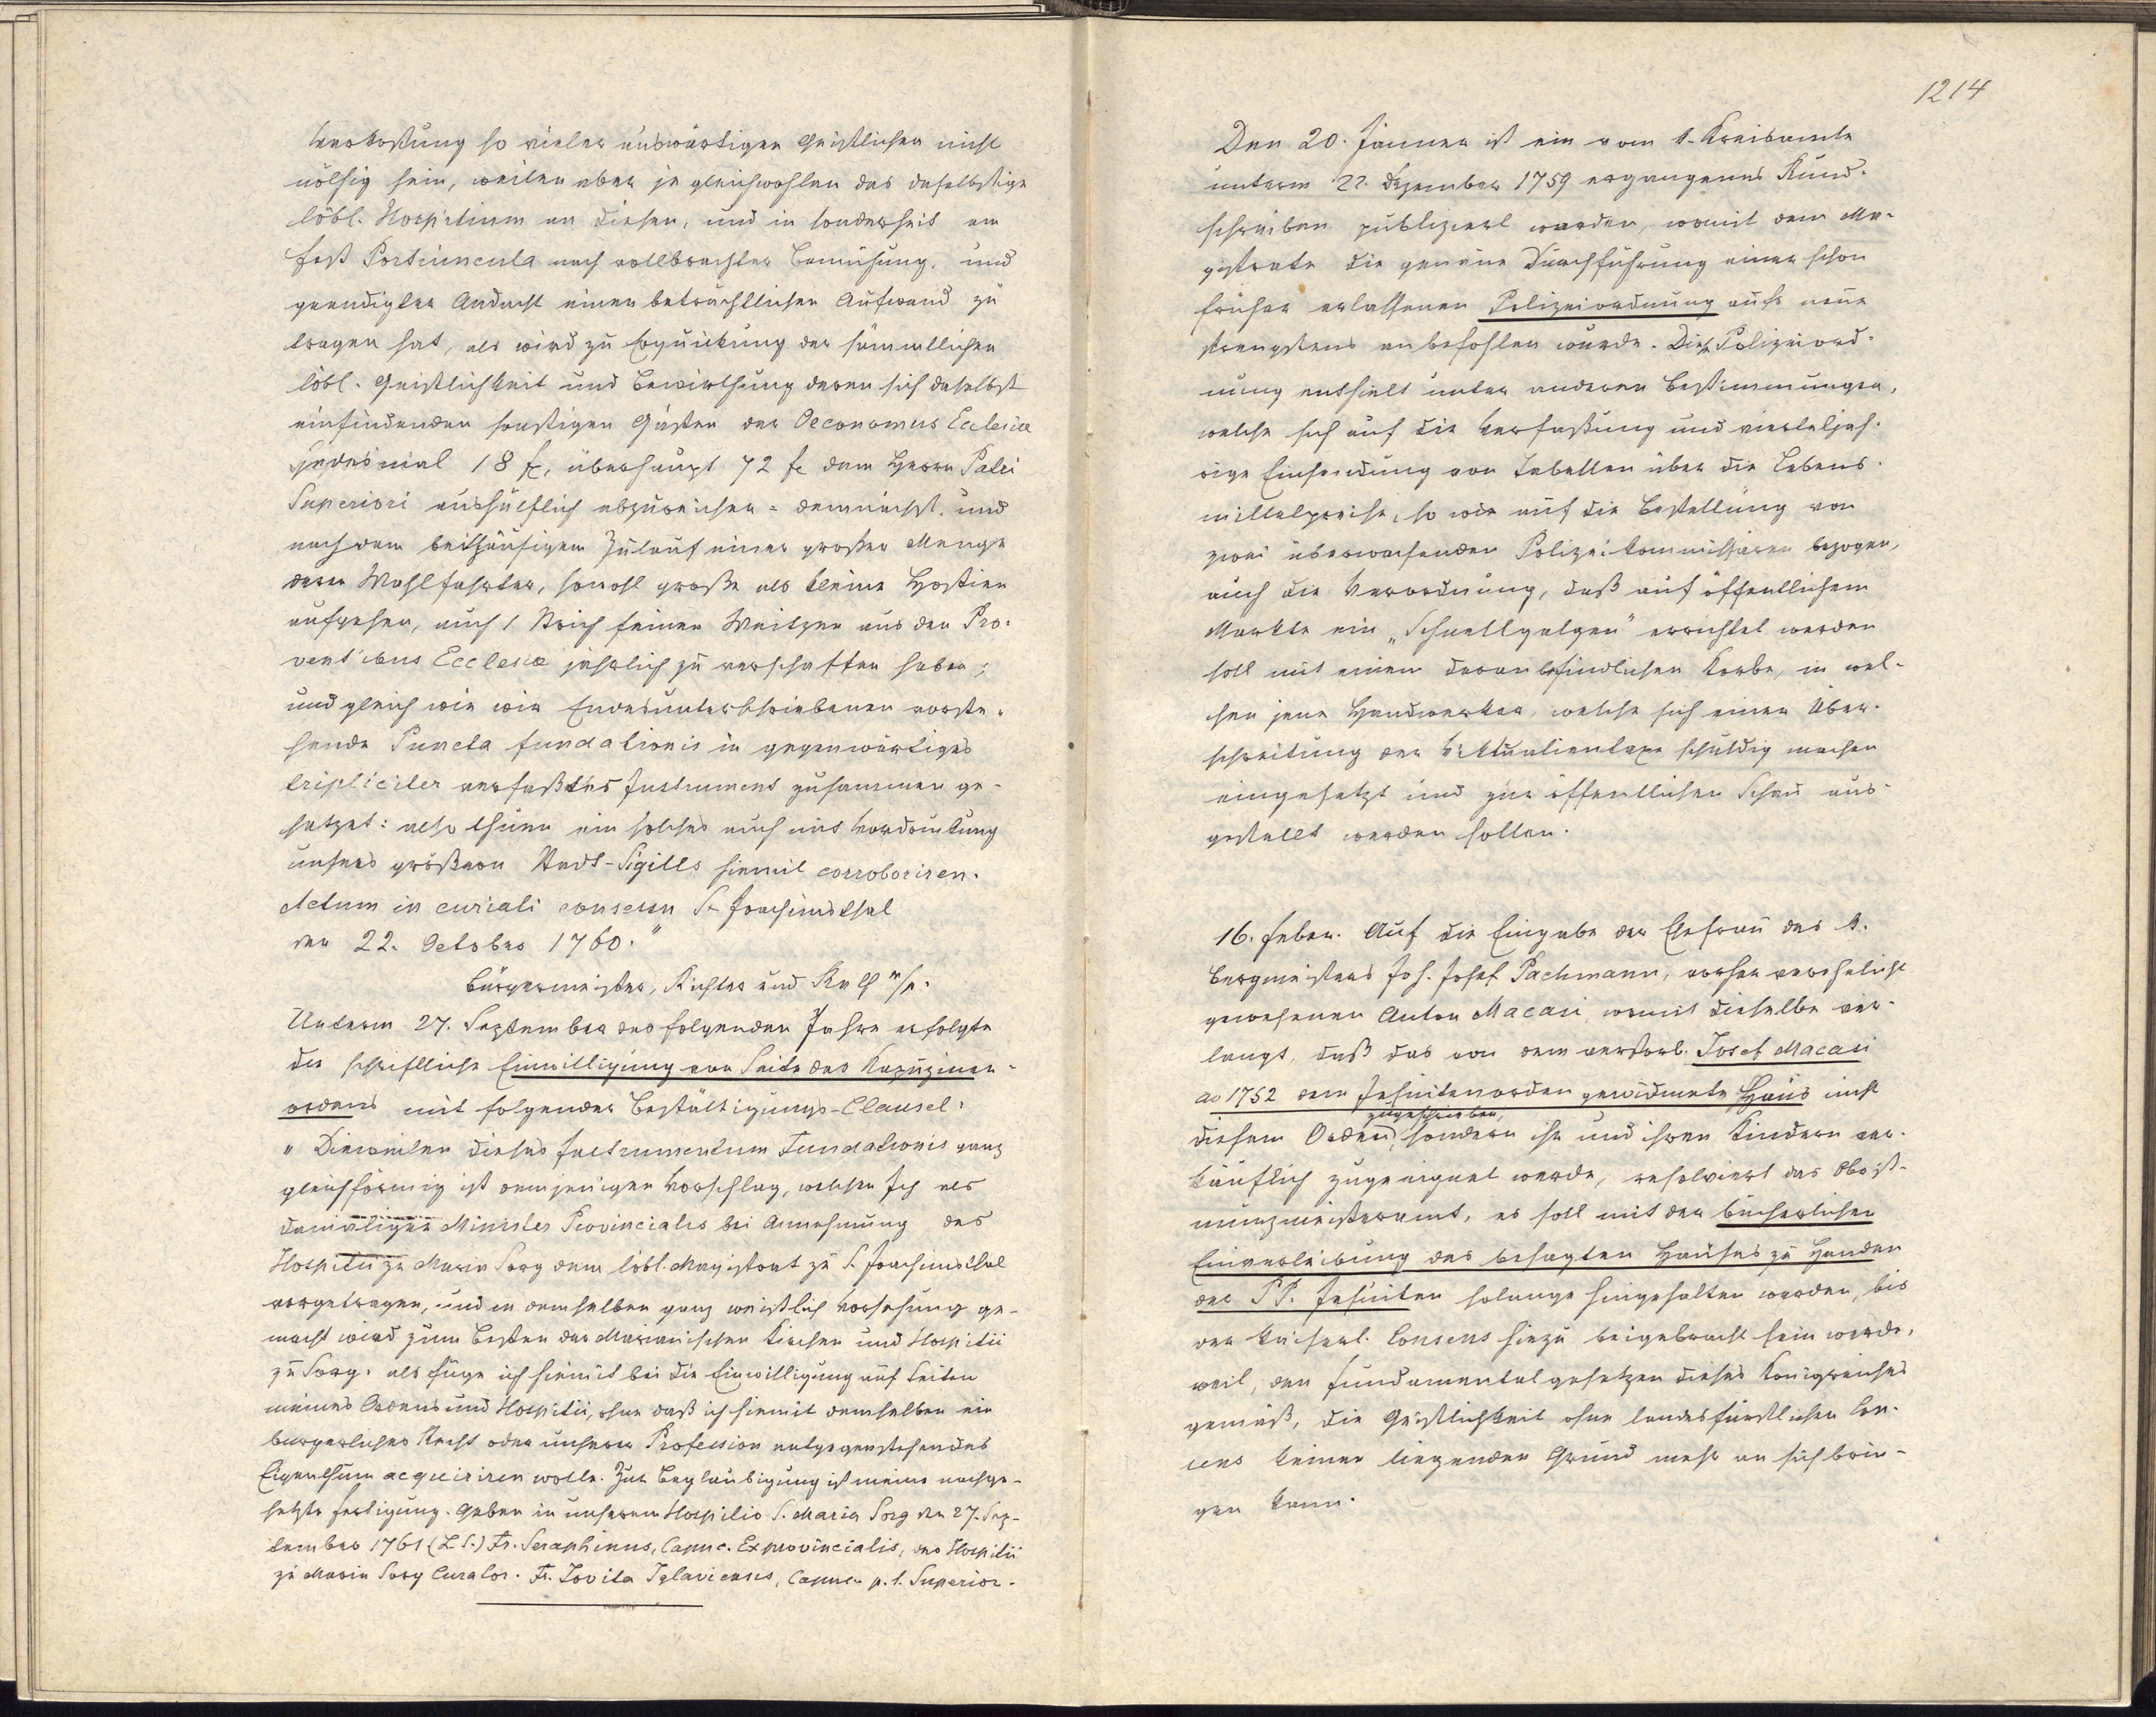 Verkostung so vieler auswärtigen Geistlichen nicht
nöthig sein, weilen aber je gleichwohlen das daselbstige
löbl. Hospitium an diesen, und in sonderheit am
Fest Portiuncula nach vollbrachter Bemühung, und
geendigter Andacht einen beträchtlichen Aufwand zu
tragen hat, als wird zu Erquickung der sämmtlichen
löbl. Geistlichkeit und Bewirthung deren sich daselbst
einfindenden sonstigen Gästen der Oeconomus Ecclesiæ
jedesmal 18 f, überhaupt 72 f dem Herrn Patri
Superiori aushülflich abzureichen - demnächst, und
nach dem beithäufigen Zulauf einer großen Menge
deren Wahlfahrter, sowohl große als kleine Hostien
aufgehen, auch 1 Strich feinen Weitzen aus den Pro-
ventibus Ecclesiæ jährlich zu verschaffen haben;
und gleich wie wir Endesunterschriebenen vorste-
hende Puncta fundationis in gegenwärtiges
tripliciter verfaßtes Instrument zusammen ge-
setzet: also thuen ein solches auch mit Vordruckung
unsers größern Stadt-Sigills hiemit corroboriren.
Actum in curiali consessu St Joachimsthal
den 22. Octobro 1760."
Bürgermeister, Richter und Rath m/p.
Unterm 27. September des folgenden Jahrs erfolgte
die schriftliche Einwilligung von Seite des Kapuziner-
ordens mit folgender Bestättigungs-Clausel:
"Dieweilen dieses Instrumentum Fundationis ganz
gleichförmig ist demjenigen Vorschlag, welchen Ich als
damaliger Minister Provincialis bei Annehmung des
Hospitii zu Maria Sorg dem löbl. Magistrat zu S. Joachimsthal
vorgetragen, und in demselben ganz weislich Vorsehung ge-
macht wird zum Besten der Marianischen Kirchen und Hospitii
zu Sorg: als füge ich hiemit bei die Einwilligung auf Seiten
meines Ordens und Hospitii, ohne daß ich hiemit demselben ein
bürgerliches Recht oder unserer Profession entgegenstehendes
Eigenthum acquiriren wolle. Zur Beglaubigung ist meine nachge-
setzte Fertigung. Geben in unserem Hospitio S. Maria Sorg den 27. Sep-
tember 1761 (L.S.) Fr. Seraphinus, Capuc. Exprovincialis, des Hospitii
zu Maria Sorg Curator. Fr. Jovita Iglaviensis, Capuc. p.t. Superior.
1214
Den 20. Jänner ist ein vom k. Kreisamte
unterm 22. Dezember 1759 ergangenes Rund-
schreiben publiziert worden, womit dem Ma-
gistrate die genaue Durchführung einer schon
früher erlassenen Polizeiordnung aufs neue
strengstens anbefohlen wurde. Diese Polizeiord-
nung enthielt unter anderen Bestimmungen,
welche sich auf die Verfaßung und vierteljäh-
rige Einsendung von Tabellen über die Lebens-
mittelpreise, so wie auf die Bestellung von
zwei überwachenden Polizeikommissären bezogen,
auch die Verordnung, daß auf öffentlichem
Markte ein „Schnellgalgen" errichtet werden
soll mit einem daran befindlichen Korbe, in wel-
chen jene Handwerker, welche sich einer Über-
schreitung der Viktualientaxe schuldig machen
eingesetzt und zur öffentlichen Schau aus-
gestellt werden sollen.
16. Feber. Auf die Eingabe der Ehefrau des k.
Bergmeisters Joh. Josef Pachmann, vorher verehelicht
gewesenen Anton Macasi, womit dieselbe ver-
langt, daß das von dem verstorb. Josef Macasi
ao 1752 dem Jesuitenorden gewidmete Haus nicht
diesem Orden zugeschrieben, sondern ihr und ihren Kindern ver-
käuflich zugeeignet werde, resolviert das Oberst-
münzmeisteramt, es soll mit der bücherlichen
Einverleibung des besagten Hauses zu Handen
der PP. Jesuiten solange hingehalten werden, bis
der kaiserl. Consens hiezu beigebracht sein werde,
weil, den Fundamentalgesetzen dieses Königreiches
gemäß, die Geistlichkeit ohne landesfürstlichen Con-
sens keinen liegenden Grund mehr an sich brin-
gen kann.